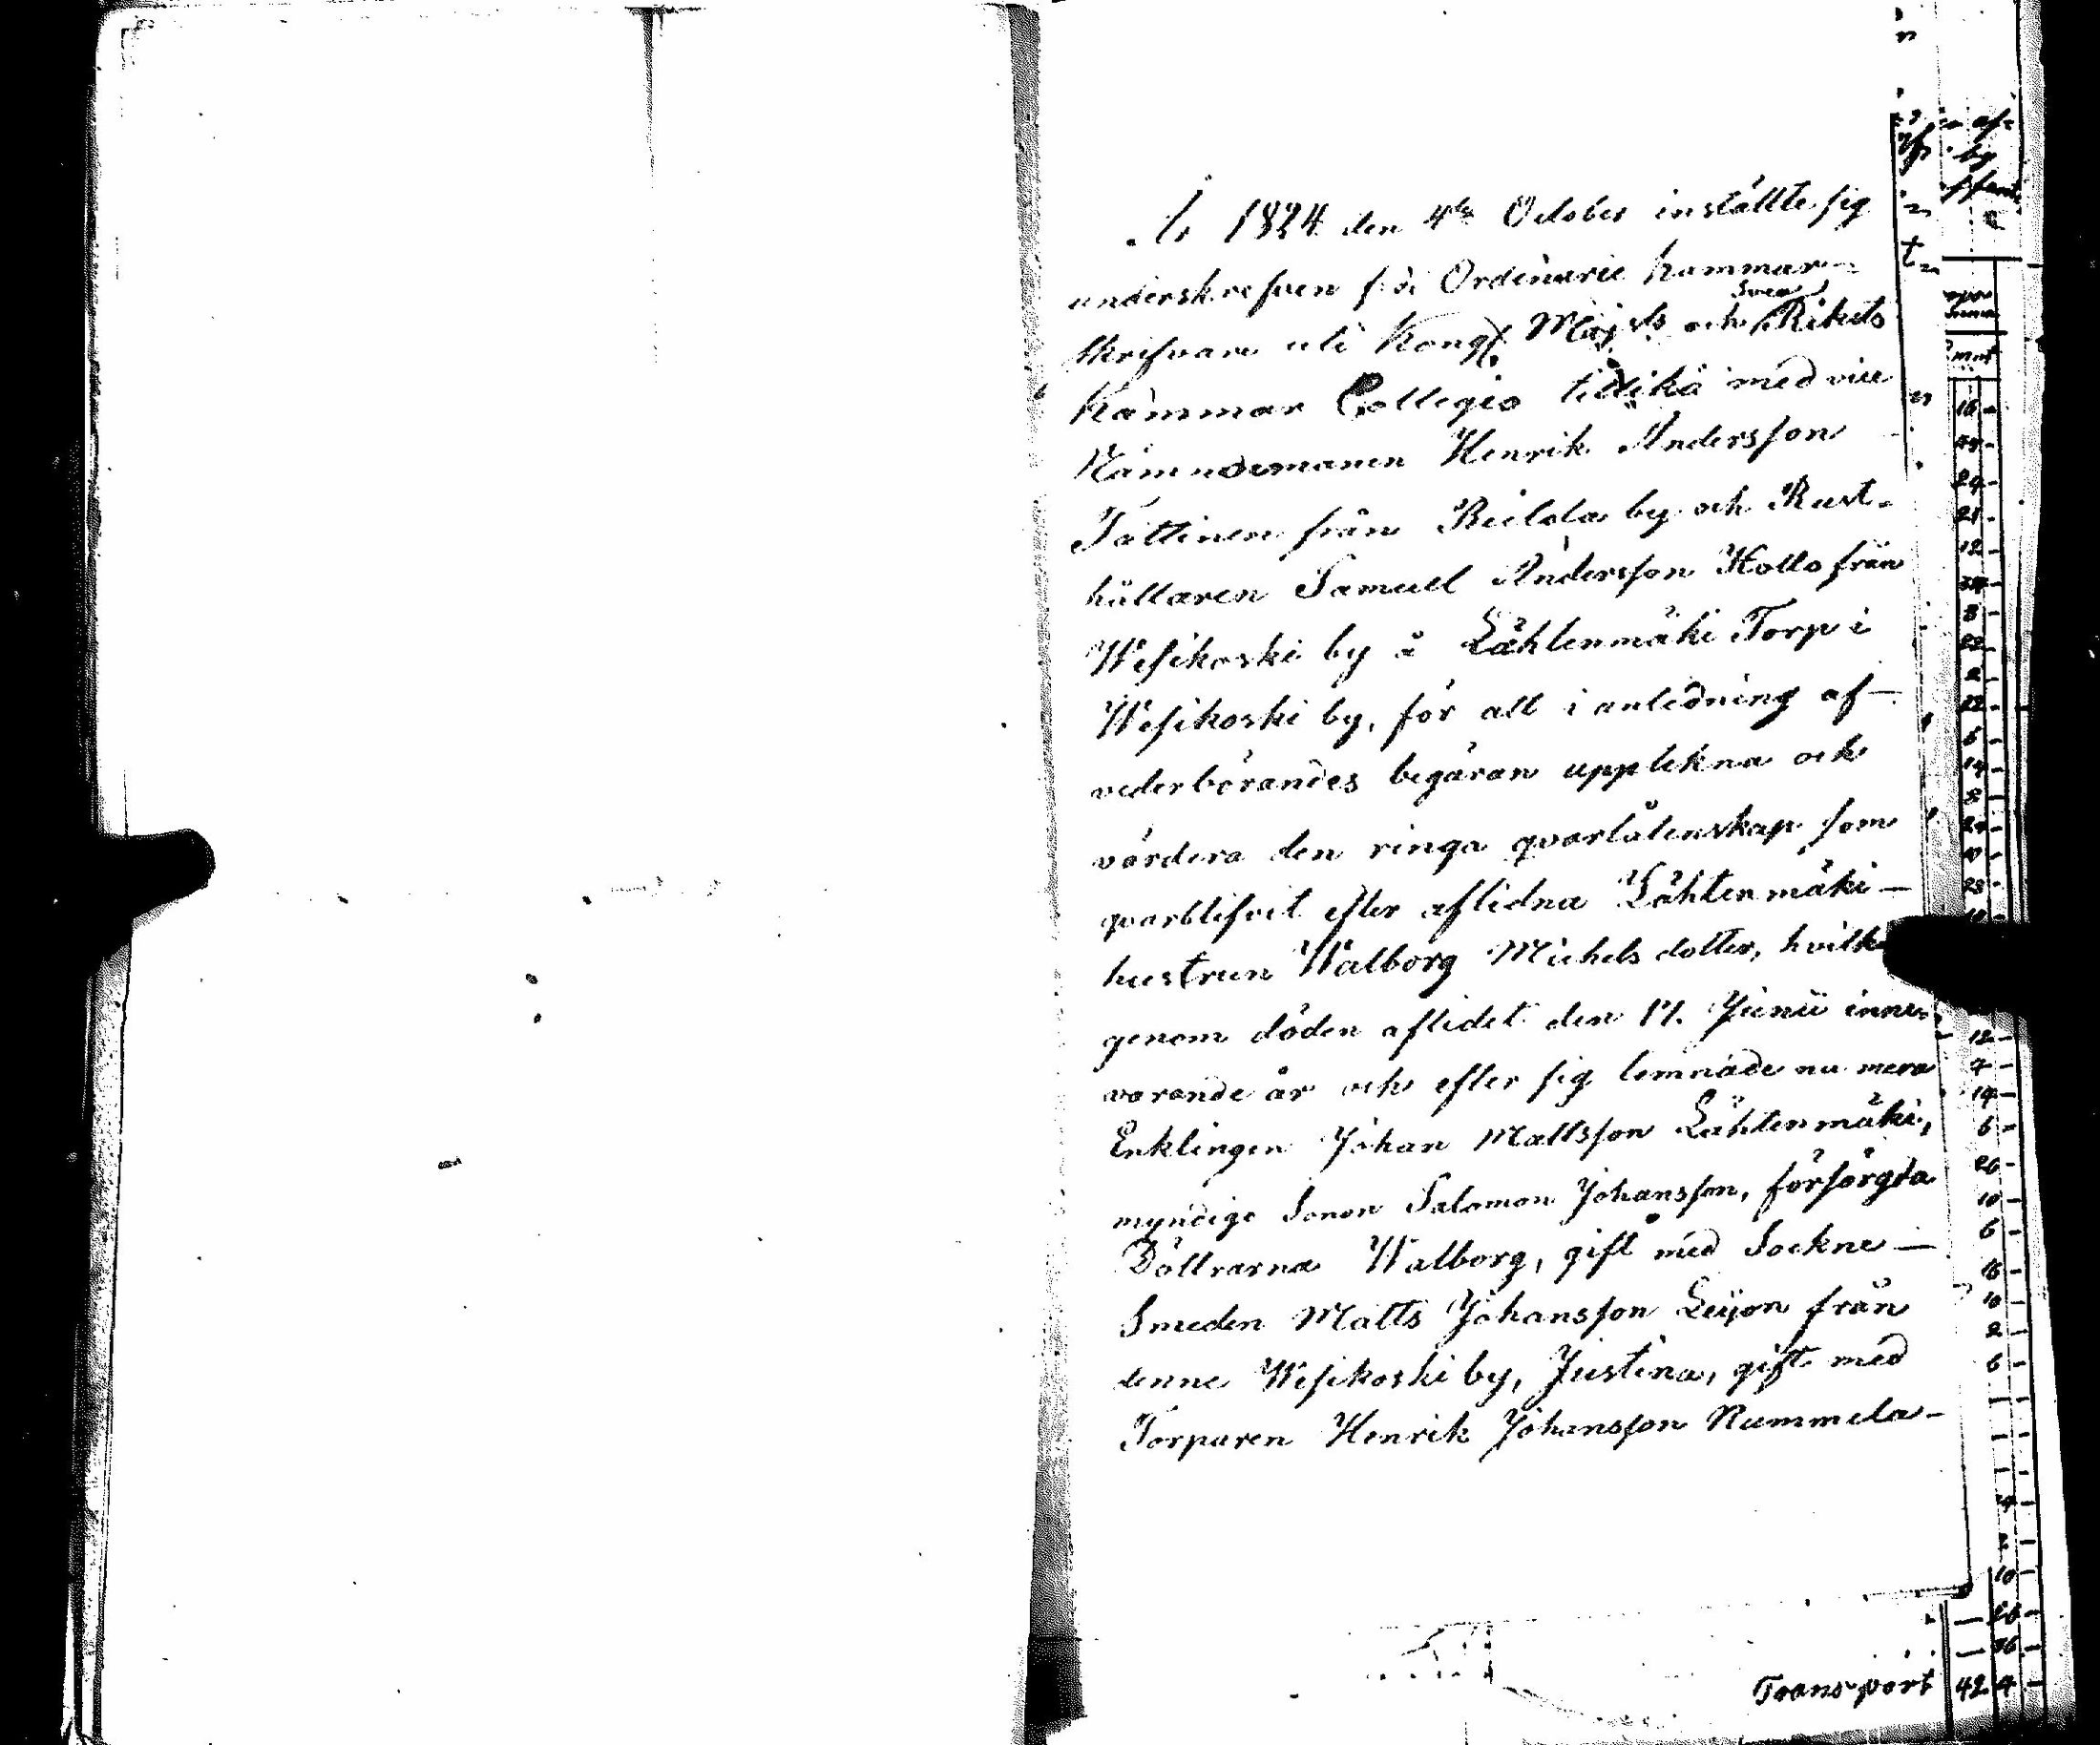 År 1824 den 4de October inställte sig
underskrefven från Ordinarie kammar-
skrifvare uti Kongl. Maj:ts och Svea Rikets
Kammar Collegio tillika med vice
Nämndemannen Henrik Andersson
Tattinen från Beilola by och Rust-
hållaren Samuel Andersson Kollo från
Wesikoski by å Lähtenmäki Torp i
Wesikoski by, för att i anledning af
vederbörandes begäran uppteckna och
värdera den ringa qvarlåtenskap som
qvarblifvit efter aflidna Lähtenmäki
hustrun Walborg Michelsdotter, hvilken
genom döden aflidet den 17. Junii inne-
varande år och efter sig lemnade nu mera
Enklingen Johan Mattsson Lähtenmäki,
myndige Sonen Salomon Johansson, försörgda
Döttrarna Walborg, gift med Sockne
Smeden Matts Johansson Leijon från
denne Wesikoski by, Justina, gift med
Torparen Henrik Johansson Nummela
Transport 42 4